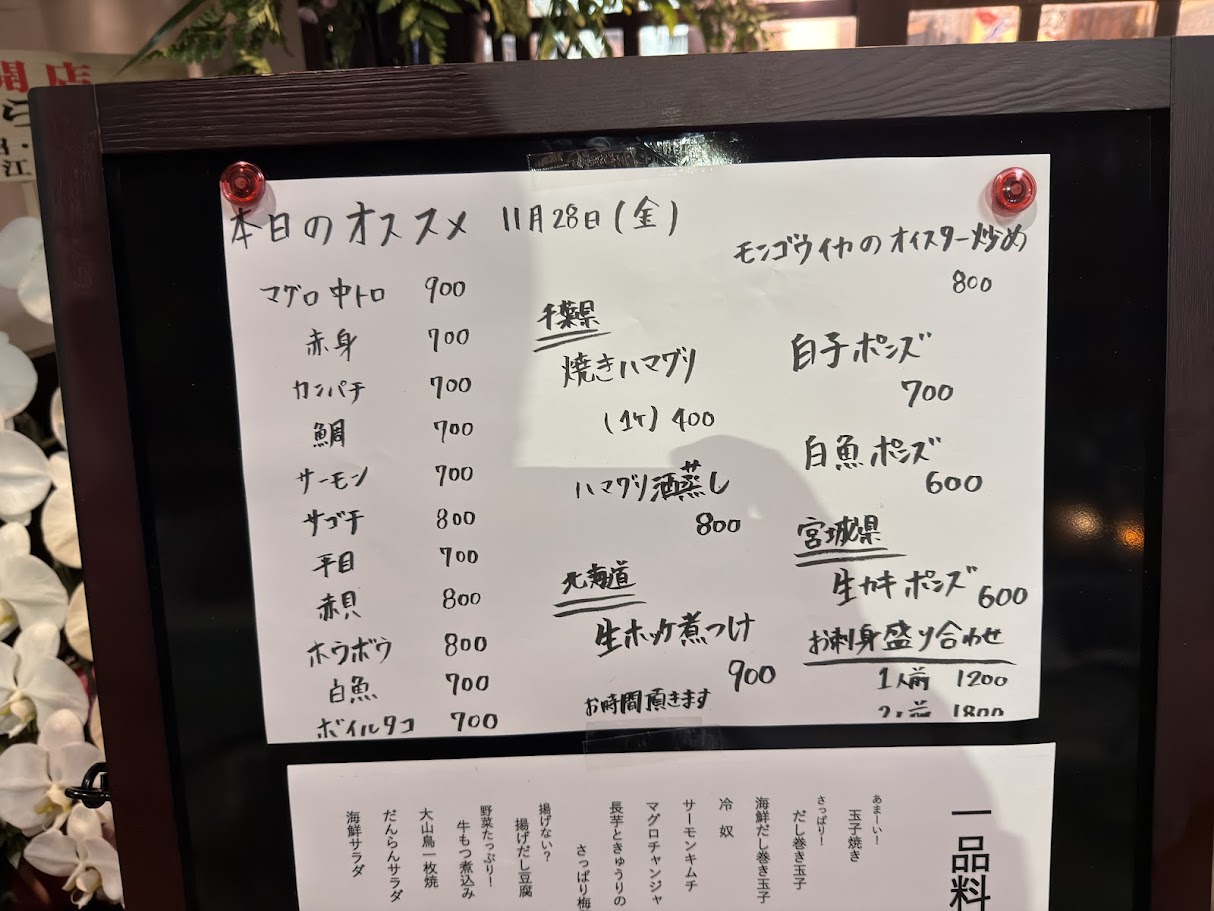 開店
本日のオススメ 11月28日(金)
マグロ中トロ 900
赤身 700
カンパチ 700
鯛 700
サーモン 700
サゴチ 800
平目 700
赤貝 800
ホウボウ 800
白魚 700
ボイルタコ 700
千葉県
焼きハマグリ
(1ケ) 400
ハマグリ酒蒸し
800
北海道
生ホッケ煮つけ
900
お時間頂きます
モンゴウイカのオイスター炒め
800
白子ポンズ
700
白魚ポンズ
600
宮城県
生カキポンズ 600
お刺身盛り合わせ
1人前 1200
2人前 1800
一品料
あまーい!
玉子焼き
さっぱり!
だし巻き玉子
海鮮だし巻き玉子
冷奴
サーモンキムチ
マグロチャンジャ
長芋ときゅうりの
さっぱり梅
揚げない?
揚げだし豆腐
野菜たっぷり!
牛もつ煮込み
大山鳥一枚焼
だんらんサラダ
海鮮サラダ